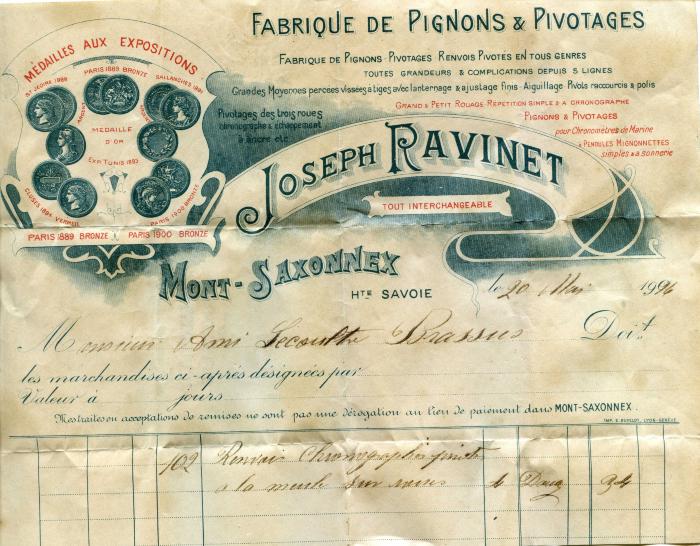 FABRIQUE DE PIGNONS & PIVOTAGES
FABRIQUE DE PIGNONS-PIVOTAGES RENVOIS PIVOTÉS EN TOUS GENRES
TOUTES GRANDEURS & COMPLICATIONS DEPUIS 5 LIGNES
Grandes Moyennes percées vissées à tiges avec lanternage & ajustage finis-Aiguillage Pivots raccourcis & polis
GRAND & PETIT ROUAGE-RÉPÉTITION SIMPLE & A CHRONOGRAPHE
PIGNONS & PIVOTAGES
pour Chronomètres de Marine
& PENDULES MIGNONNETTES
simples & à sonnerie
Pivotages des trois roues
chronographe & échappement
à ancre etc
MÉDAILLES AUX EXPOSITIONS
PARIS 1889 BRONZE
SALLANCHES 1891
ARGENT
ARGENT
MÉDAILLE
D'OR
EXP. TUNIS 1893
CLUSES 1894
VERMEIL
PARIS 1900 BRONZE
PARIS 1889 BRONZE
PARIS 1900 BRONZE
JOSEPH RAVINET
TOUT INTERCHANGEABLE
MONT-SAXONNEX
HTE SAVOIE
le 20 Mai
Monsieur Ami Lecoultre Brassus Doit
les marchandises ci-après désignées par
Valeur à jours
Mes traites ou acceptations de remises ne sont pas une dérogation au lieu de paiement dans MONT-SAXONNEX.
102 Renvois Chronographes
à la meule sur